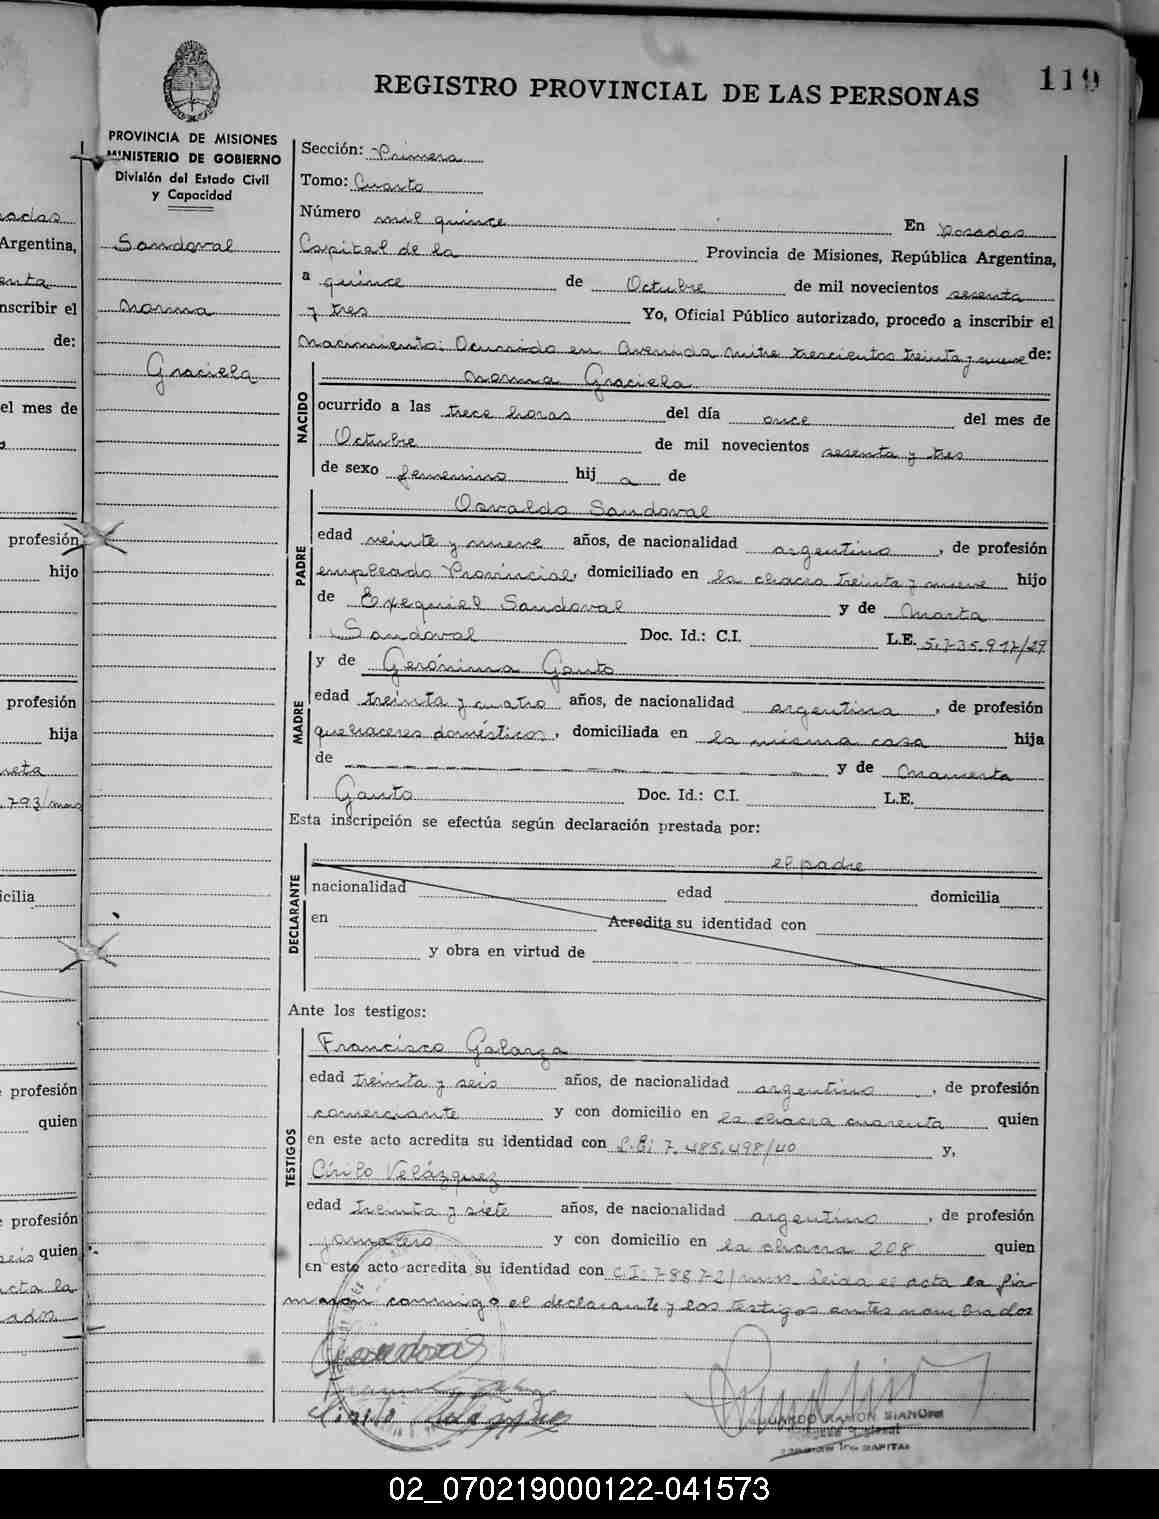 REGISTRO PROVINCIAL DE LAS PERSONAS
119
PROVINCIA DE MISIONES
MINISTERIO DE GOBIERNO
División del Estado Civil
y Capacidad
Sandoval
Norma
Graciela
Sección: Primera
Tomo: Cuarto
Número mil quince En Posadas
Capital de la Provincia de Misiones, República Argentina,
a quince de Octubre de mil novecientos sesenta
y tres Yo, Oficial Público autorizado, procedo a inscribir el
Nacimiento: Ocurrido en Avenida Mitre trescientos treinta y nueve de:
NACIDO
Norma Graciela
ocurrido a las trece horas del día once del mes de
Octubre de mil novecientos sesenta y tres
de sexo femenino hija de
PADRE
Osvaldo Sandoval
edad veinte y nueve años, de nacionalidad argentino, de profesión
empleado Provincial, domiciliado en la chacra treinta y nueve hijo
de Exequiel Sandoval y de Marta
Sandoval Doc. Id.: C.I. L.E. 5.735.917/29
MADRE
y de Gerónima Gauto
edad treinta y cuatro años, de nacionalidad argentina, de profesión
quehaceres domésticos, domiciliada en la misma casa hija
de y de
Gauto Doc. Id.: C.I. L.E.
Esta inscripción se efectúa según declaración prestada por:
DECLARANTE
el padre
nacionalidad edad domicilia
en Acredita su identidad con
y obra en virtud de
Ante los testigos:
TESTIGOS
Francisco Galarza
edad treinta y seis años, de nacionalidad argentino, de profesión
comerciante y con domicilio en la chacra cuarenta quien
en este acto acredita su identidad con 7.485.498/40 y,
Cirilo Velázquez
edad treinta y siete años, de nacionalidad argentino, de profesión
jornalero y con domicilio en la chacra 208 quien
en este acto acredita su identidad con C.I: 78872/mns Leida el acta la fir
maron conmigo el declarante y los testigos antes nombrados
Sandoval
EDUARDO RAMON
CAPITAL
adas
Argentina,
enta
nscribir el
de:
el mes de
profesión
hijo
profesión
hija
reta
.793/mns
icilia
profesión
quien
profesión
seis quien
acta la
ados
02_070219000122-041573